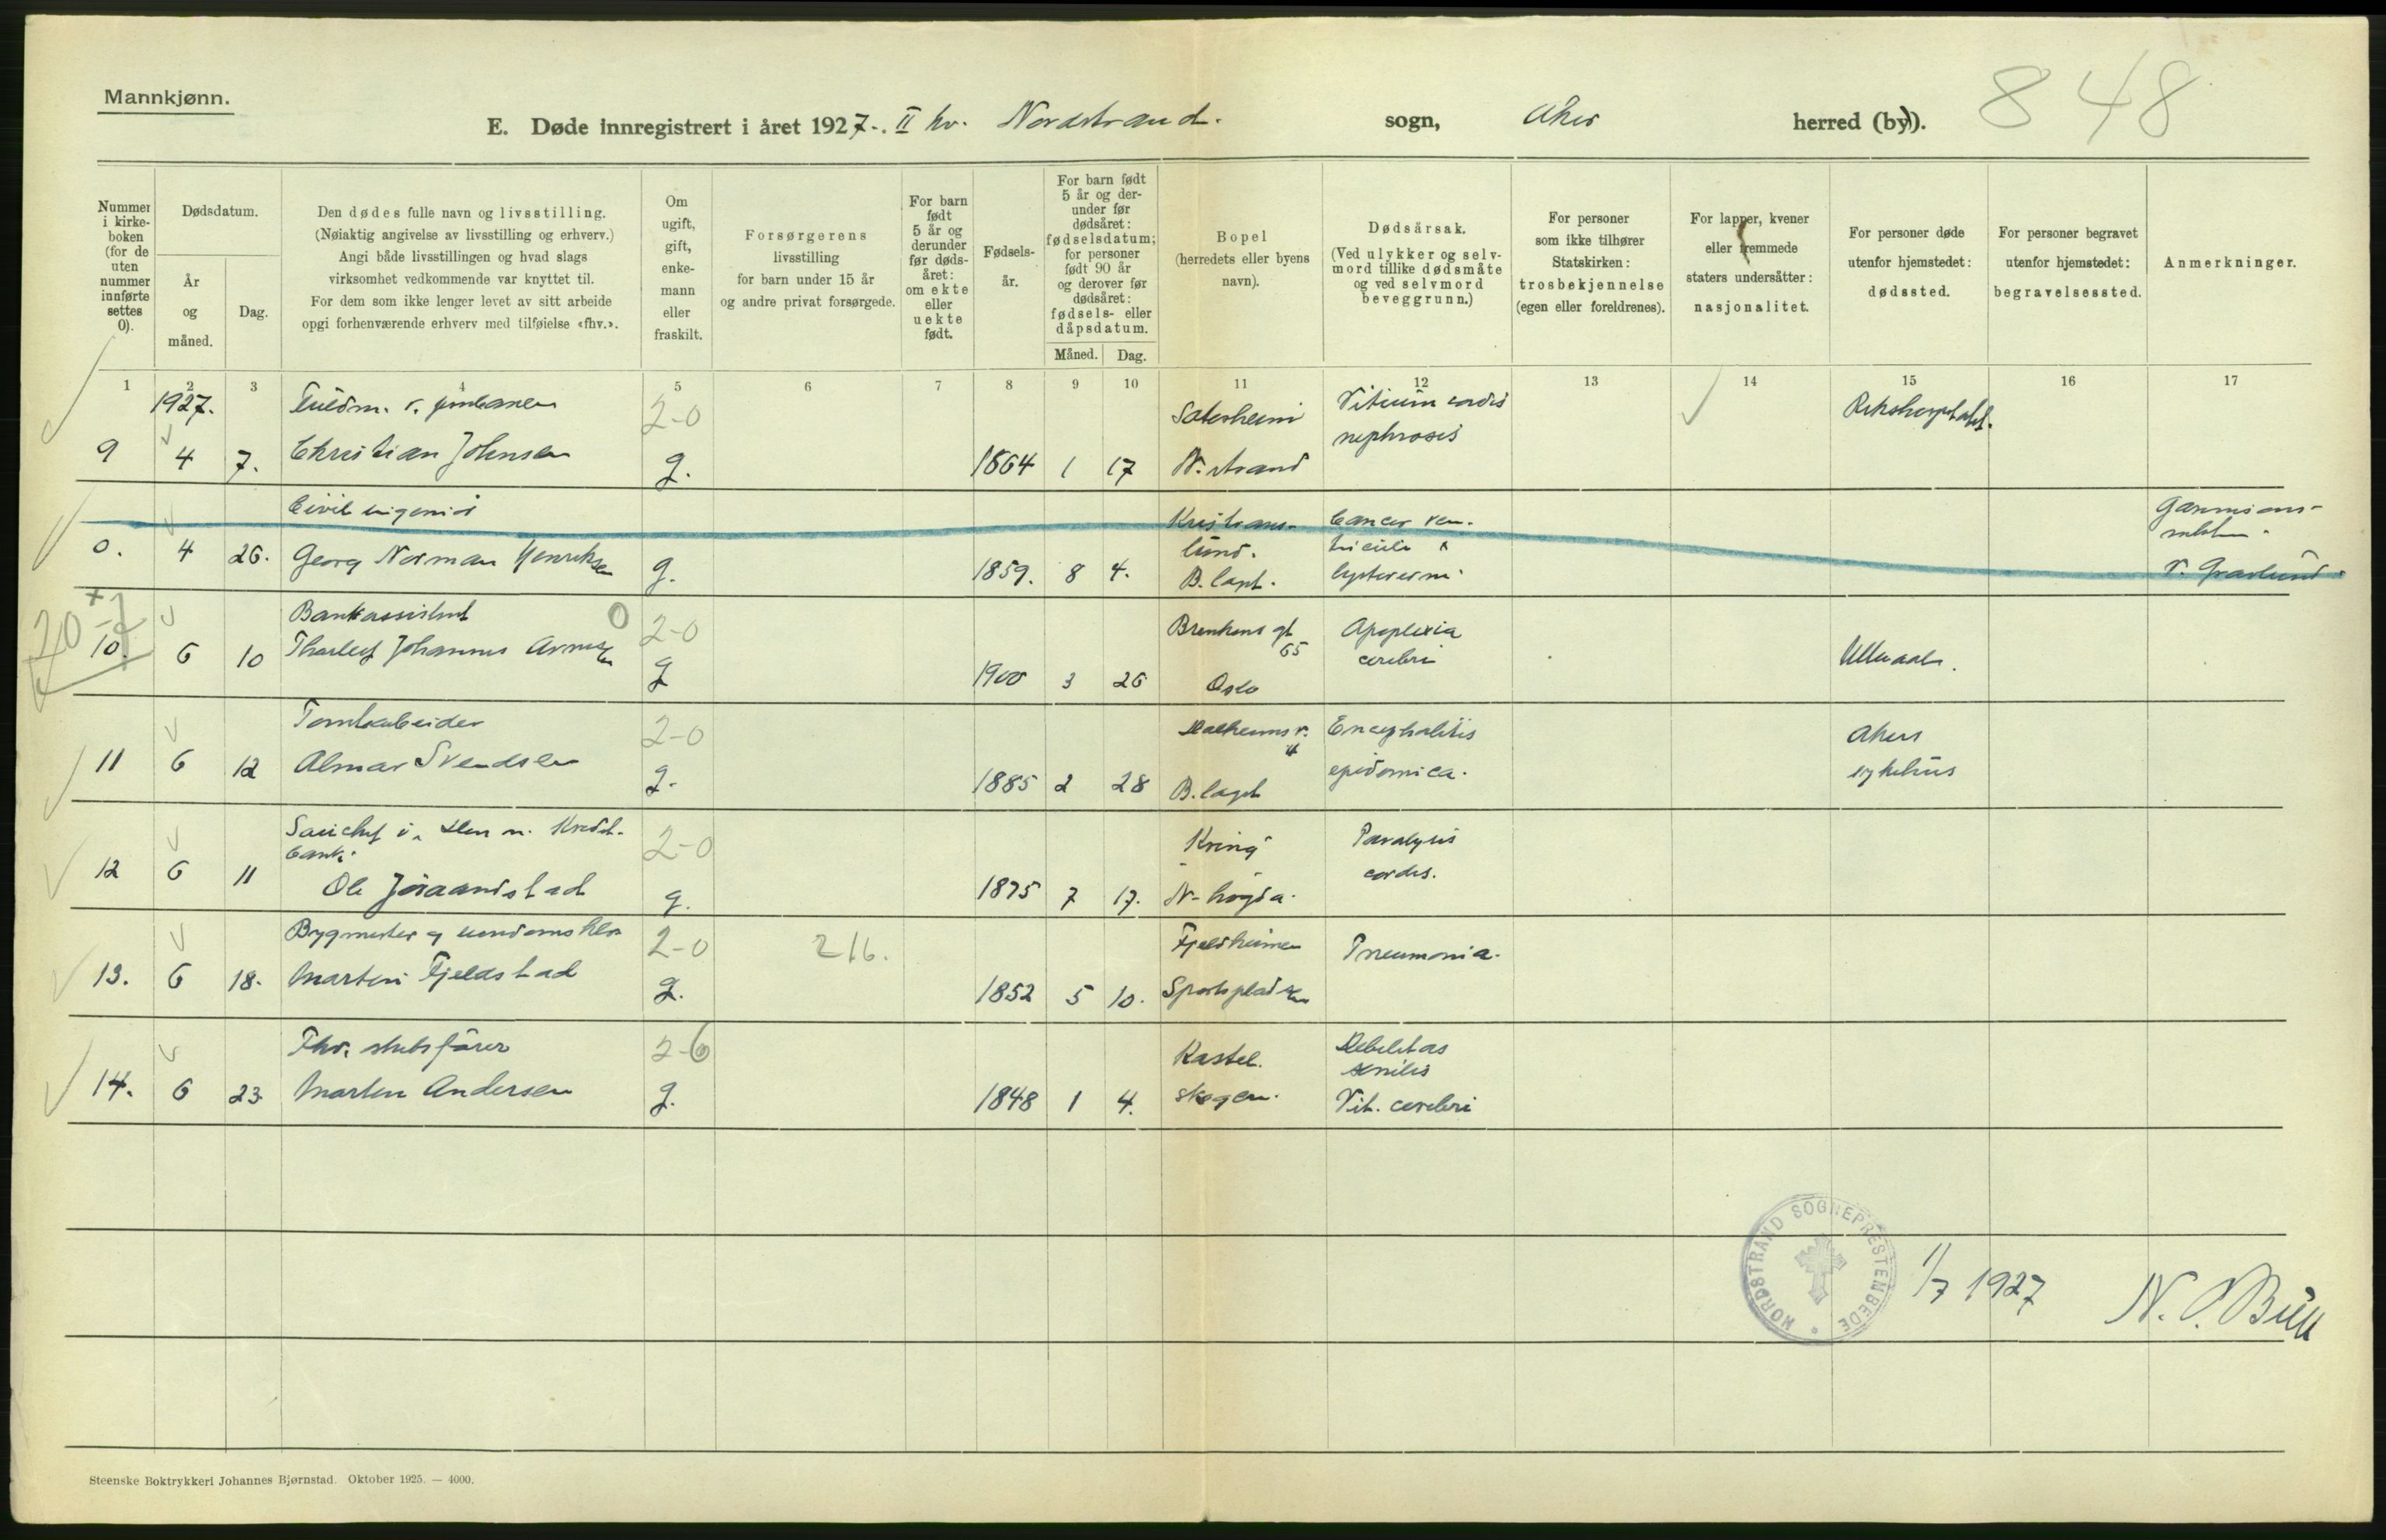 Mannkjønn.
E. Døde innregistrert i året 1927. II kv. Nordstrand. sogn, Aker herred (by).
848
Nummer i kirke-boken (for de uten nummer innførte settes 0).
Dødsdatum.
År og måned.
Dag.
Den dødes fulle navn og livsstilling.
(Nøiaktig angivelse av livsstilling og erhverv.)
Angi både livsstillingen og hvad slags
virksomhet vedkommende var knyttet til.
For dem som ikke lenger levet av sitt arbeide
opgi forhenværende erhverv med tilføielse «fhv.».
Om ugift, gift, enke-mann eller fraskilt.
Forsørgerens
livsstilling
for barn under 15 år
og andre privat forsørgede.
For barn født 5 år og derunder før døds-året: om ekte eller uekte født.
Fødsels-år.
For barn født 5 år og der-under før dødsåret: fødselsdatum; for personer født 90 år og derover før dødsåret: fødsels- eller dåpsdatum.
Måned.
Dag.
Bopel
(herredets eller byens navn).
Dødsårsak.
(Ved ulykker og selv-mord tillike dødsmåte og ved selvmord beveggrunn.)
For personer som ikke tilhører Statskirken:
trosbekjennelse
(egen eller foreldrenes).
For lapper, kvener eller fremmede staters undersåtter:
nasjonalitet.
For personer døde utenfor hjemstedet:
dødssted.
For personer begravet utenfor hjemstedet:
begravelsessted.
Anmerkninger.
1 2 3 4 5 6 7 8 9 10 11 12 13 14 15 16 17
1927. 2-0 Vitium cordis Rikshospitalet.
nephrosis
9 4 7. Christian Johnsen g. 1864 1 17 N. strand
Civilingeniør Kristians- Cancer ven-
lund. triculi
0. 4 26. Georg Norman Henriksen g. 1859. 8 4. B. laget.
v. Gravlund.
20
Bankassistent 0 2-0 65 Apoplexia
10. 6 10 Johannes g 1900 3 26 Oslo cerebri Ullevaal.
2-0 4 Encephalitis Akers
11 6 12 Almar Svendsen g. 1885 2 28 B. laget epidemica. sykehus
i Den n. Kredit-
bank. 2-0 Paralysis
12 6 11 Ole g. 1875 7 17. N-høgda. cordis.
Bygmester og 2-0 216. Fjeldheimen Pneumonia.
13. 6 18. Martin Fjeldstad g. 1852 5 10. Sportspladsen
Fhv. 2-6 Kastel- Debilitas
senilis
14. 6 23. Martin Andersen g. 1848 1 4. skogen. Vit. cerebri
NORDSTRAND SOGNEPRESTEMBEDE
1/7 1927
N. O. Bull
Steenske Boktrykkeri Johannes Bjørnstad. Oktober 1925. — 4000.